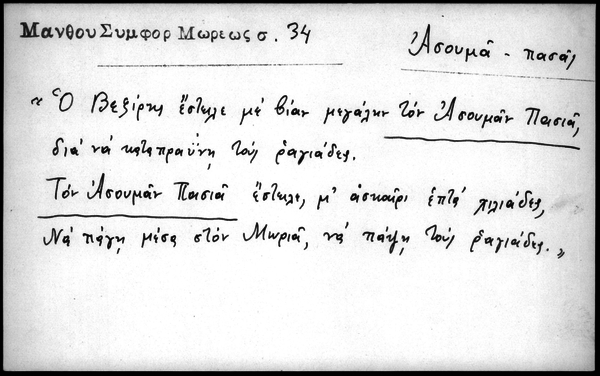 Μανθου Συμφορ Μωρεως σ. 34
Ἀσουμᾶ - πασᾶς
"Ὁ Βεζίρης ἔστειλε μέ βίαν μεγάλην τόν Ἀσουμᾶν Πασιᾶ,
διά νά καταπραΰνῃ τούς ῥαγιάδες.
Τόν Ἀσουμᾶν Πασιᾶ ἔστειλε, μ' ἀσκαῖρι ἑπτά χιλιάδες,
Νά πάγῃ μέσα στόν Μωριᾶ, νά πάψῃ τούς ῥαγιάδες."